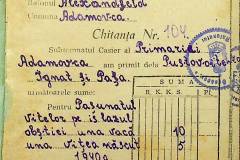 Raionul Alexandfeld
Comuna Adamovca.
Chitanța Nr. 104
Subsemnatul Casier al Primăriei
Adamovca am primit dela Pustovoite
Ignat și Pașa.
SUMA
următoarele sume: R. K. K. S.
Pentru Pașunatul
vitelor pe islazul
obștiei una vacă 10
una vițea născut 5